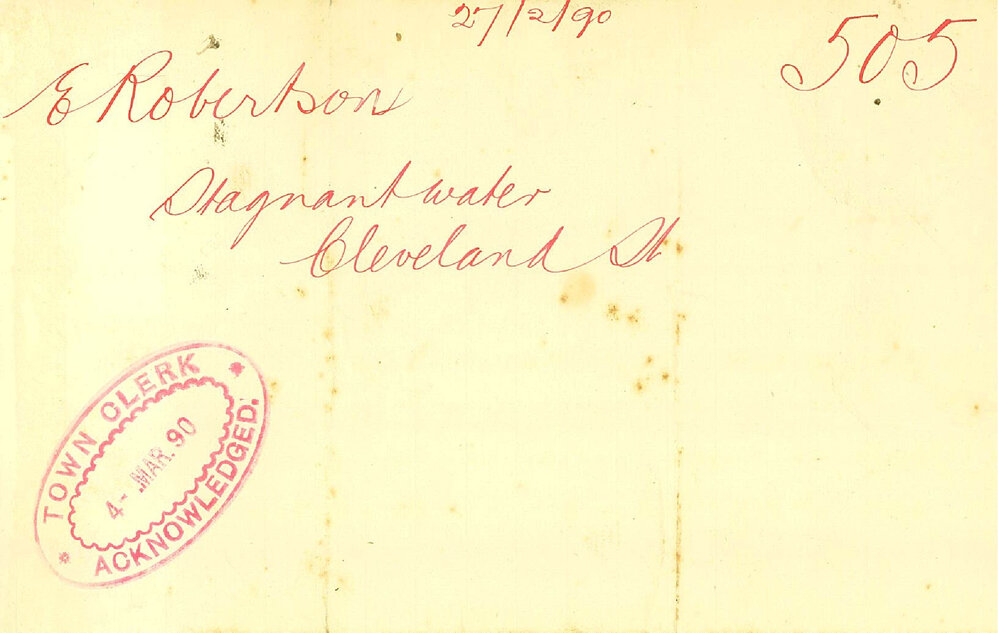 27/2/90
505
E Robertson
Stagnant water
Cleveland St
TOWN CLERK
4- MAR. 90
ACKNOWLEDGED.